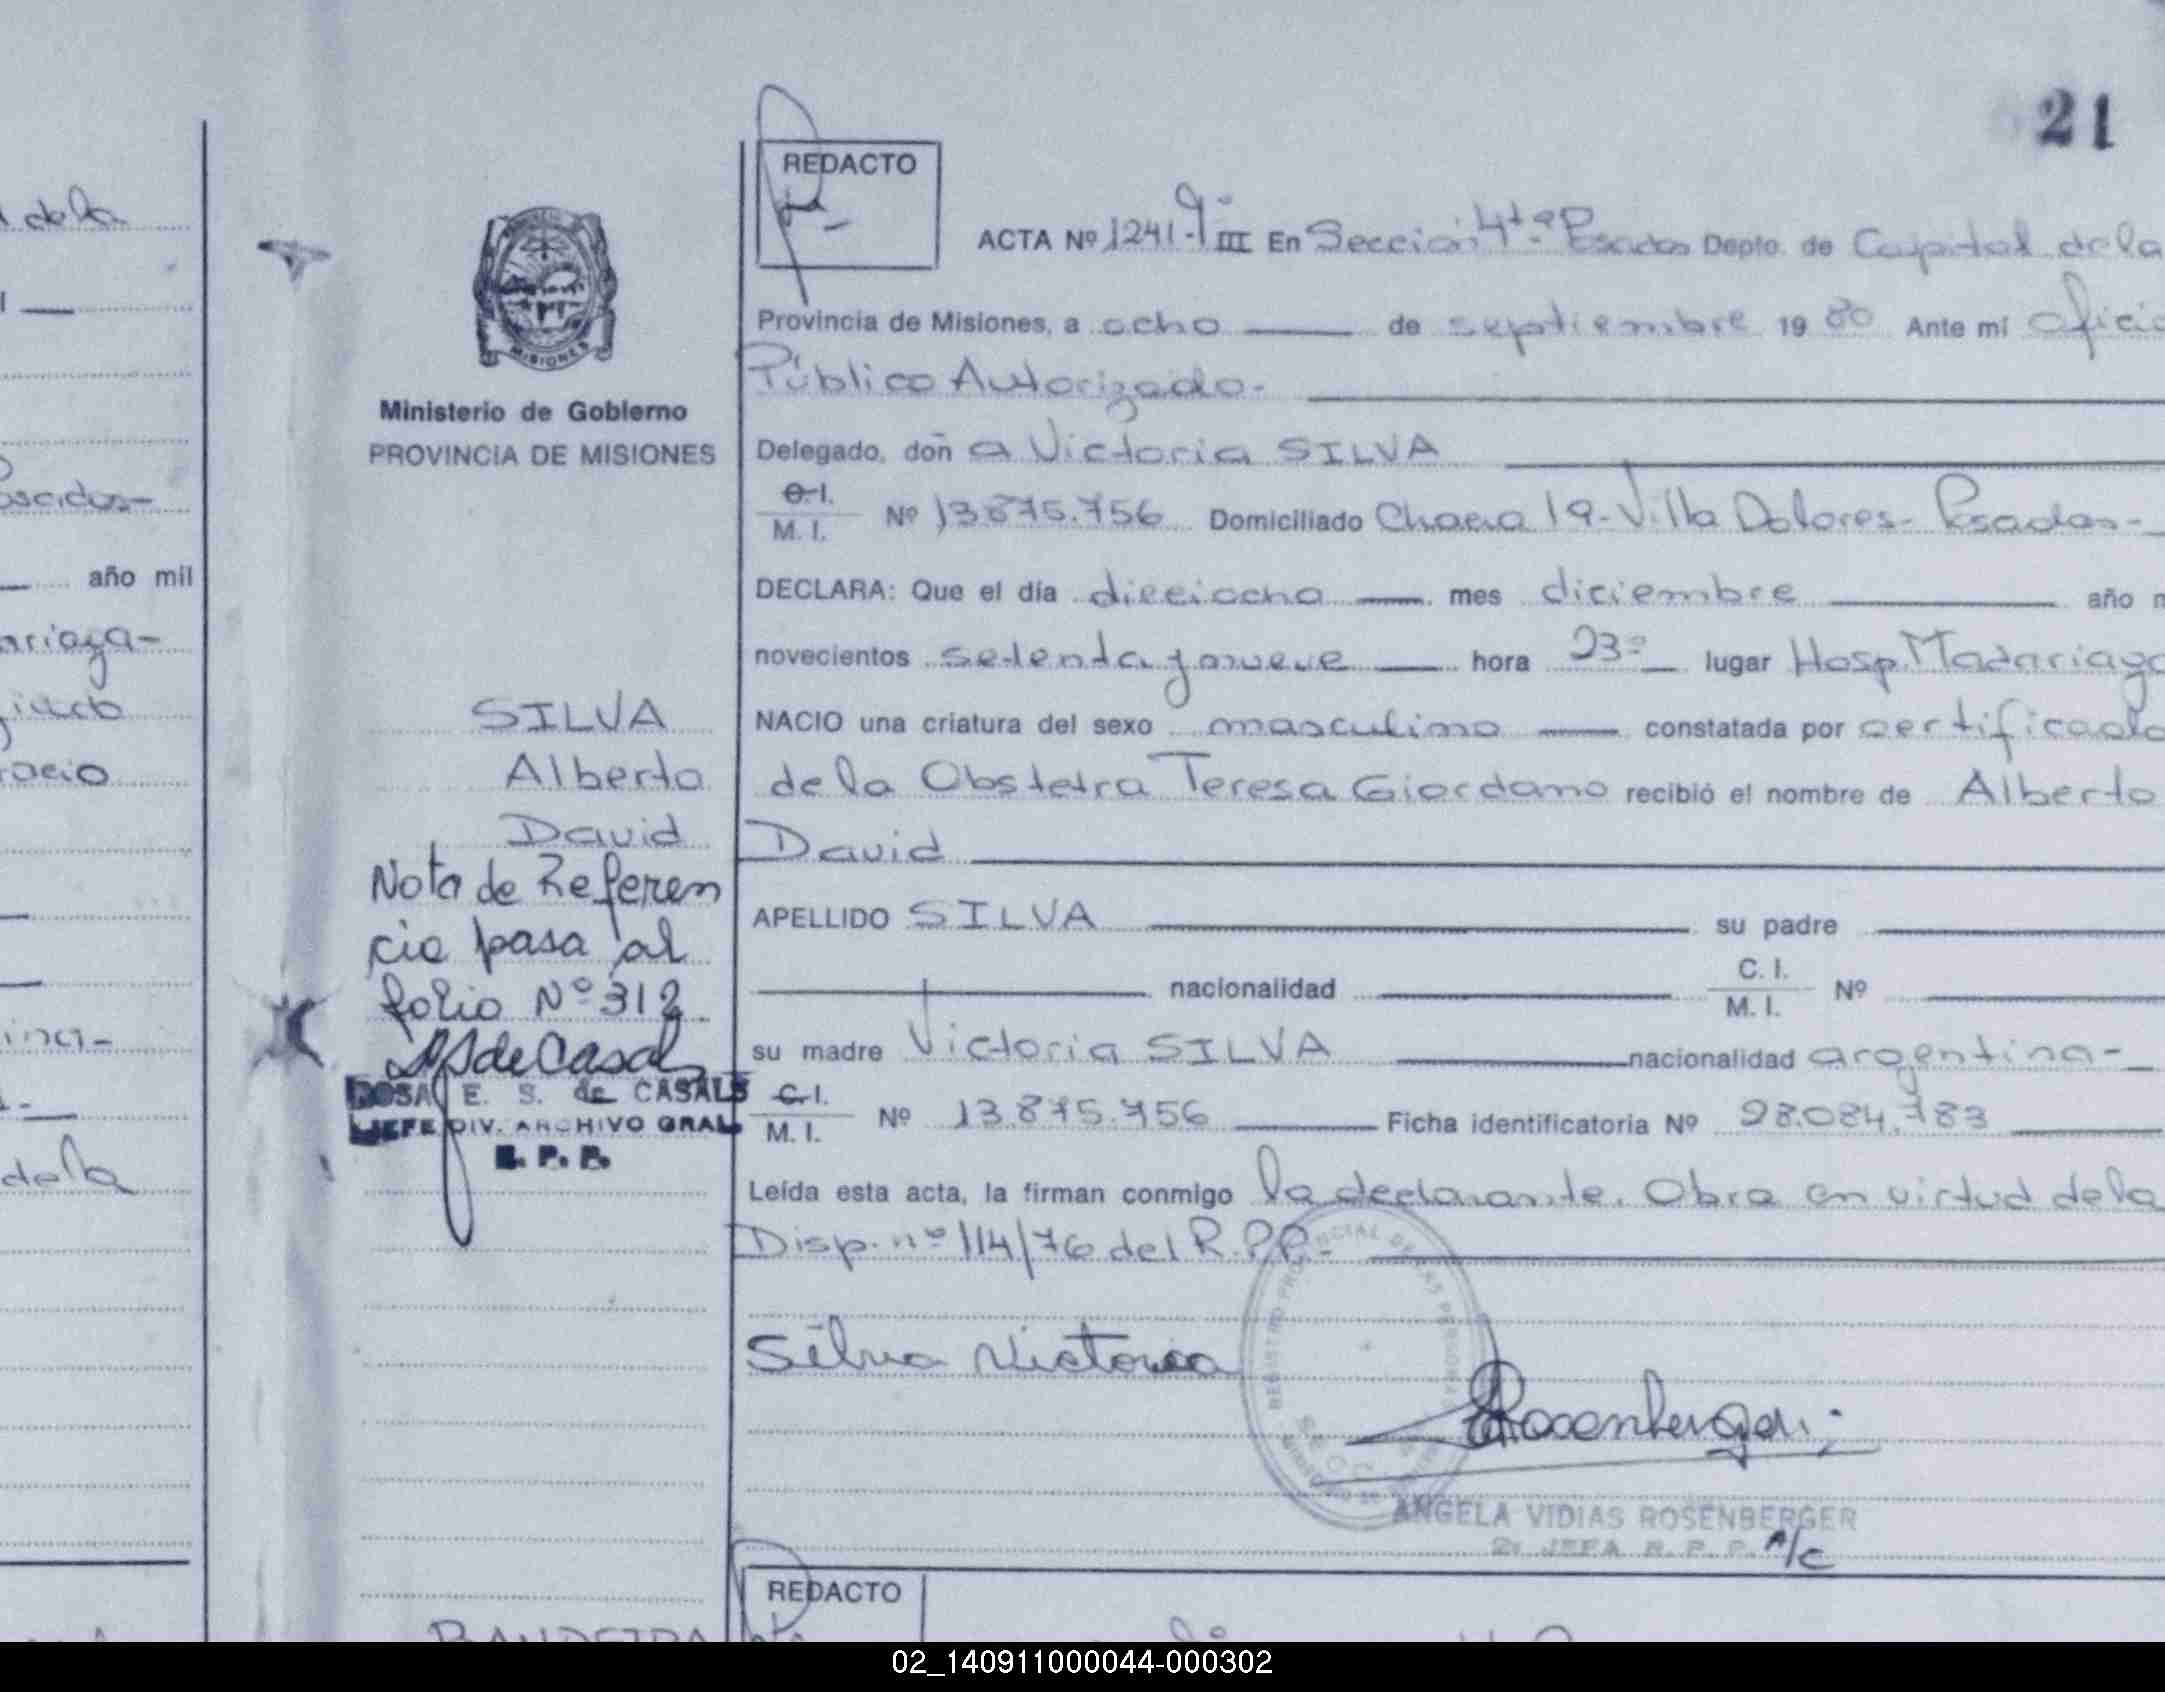 21
de la
año mil
REDACTO
ACTA Nº 1241-Tº III En Sección 4ta-Posadas Depto. de Capital de la
Provincia de Misiones, a ocho de septiembre 19 80 Ante mí Oficia
Público Autorizado-
Ministerio de Gobierno
PROVINCIA DE MISIONES
MISIONES
Delegado, doñ a Victoria SILVA
C.I.
M. I. Nº 13.875.756 Domiciliado Chacra 19-Villa Dolores-Posadas-
DECLARA: Que el día dieciocho mes diciembre año
novecientos setenta y nueve hora 23º lugar Hosp. Madariaga
NACIO una criatura del sexo masculino constatada por certificado
de la Obstetra Teresa Giordano recibió el nombre de Alberto
David
SILVA
Alberto
David
Nota de Referen
cia pasa al
folio Nº 312
ROSA E. S. de CASALS
JEFE DIV. ARCHIVO GRAL
R. P. P.
APELLIDO SILVA su padre
nacionalidad C. I.
M. I. Nº
su madre Victoria SILVA nacionalidad argentina-
C.I.
M. I. Nº 13.875.756 Ficha identificatoria Nº 28.084.783
Leída esta acta, la firman conmigo la declarante. Obra en virtud de la
Disp. nº 114/76 del R.P.P.-
Silva Victoria
Rosenberger
ANGELA VIDIAS ROSENBERGER
2ª JEFA R. P. P. A/C
REDACTO
02_140911000044-000302